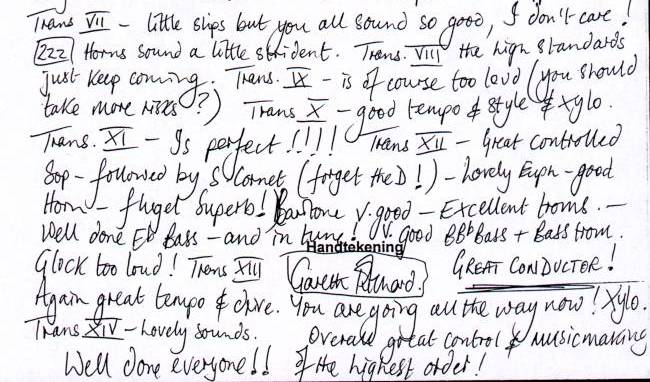 Trans VII - little slips but you all sound so good, I don't care!
222 Horns sound a little strident. Trans. VIII the high standards
just keep coming. Trans. IX - is of course too loud (you should
take more risks?) Trans X - good tempo & style & xylo.
Trans. XI - Is perfect!!!! Trans XII - Great controlled
Sop - followed by S Cornet (forget the D!) - Lovely Euph - good
Horn - flugel superb! Baritone v. good - Excellent troms. -
Well done Eb Bass - and in tune! V. good BBb Bass + Bass trom.
Handtekening
Glock too loud! Trans XIII Gareth GREAT CONDUCTOR!
Again great tempo & drive. You are going all the way now! Xylo.
Trans XIV - Lovely sounds. Overall great control & musicmaking
Well done everyone!! of the highest order!